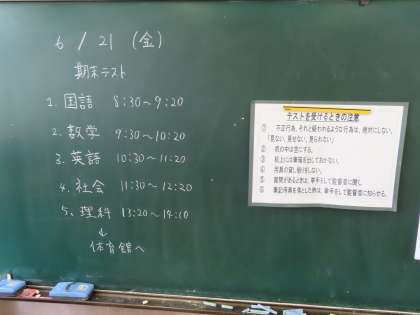 6/21 (金)
期末テスト
1. 国語 8:30～9:20
2. 数学 9:30～10:20
3. 英語 10:30～11:20
4. 社会 11:30～12:20
5. 理科 13:20～14:10
↓
体育館へ
テストを受けるときの注意
① 不正行為、それと疑われるような行為は、絶対にしない。
「見ない、見せない、見られない」
② 机の中は空にする。
③ 机上には筆箱を出しておかない。
④ 用具の貸し借りをしない。
⑤ 質問があるときは、挙手をして監督者に聞く。
⑥ 筆記用具を落とした時は、挙手をして監督者に知らせる。